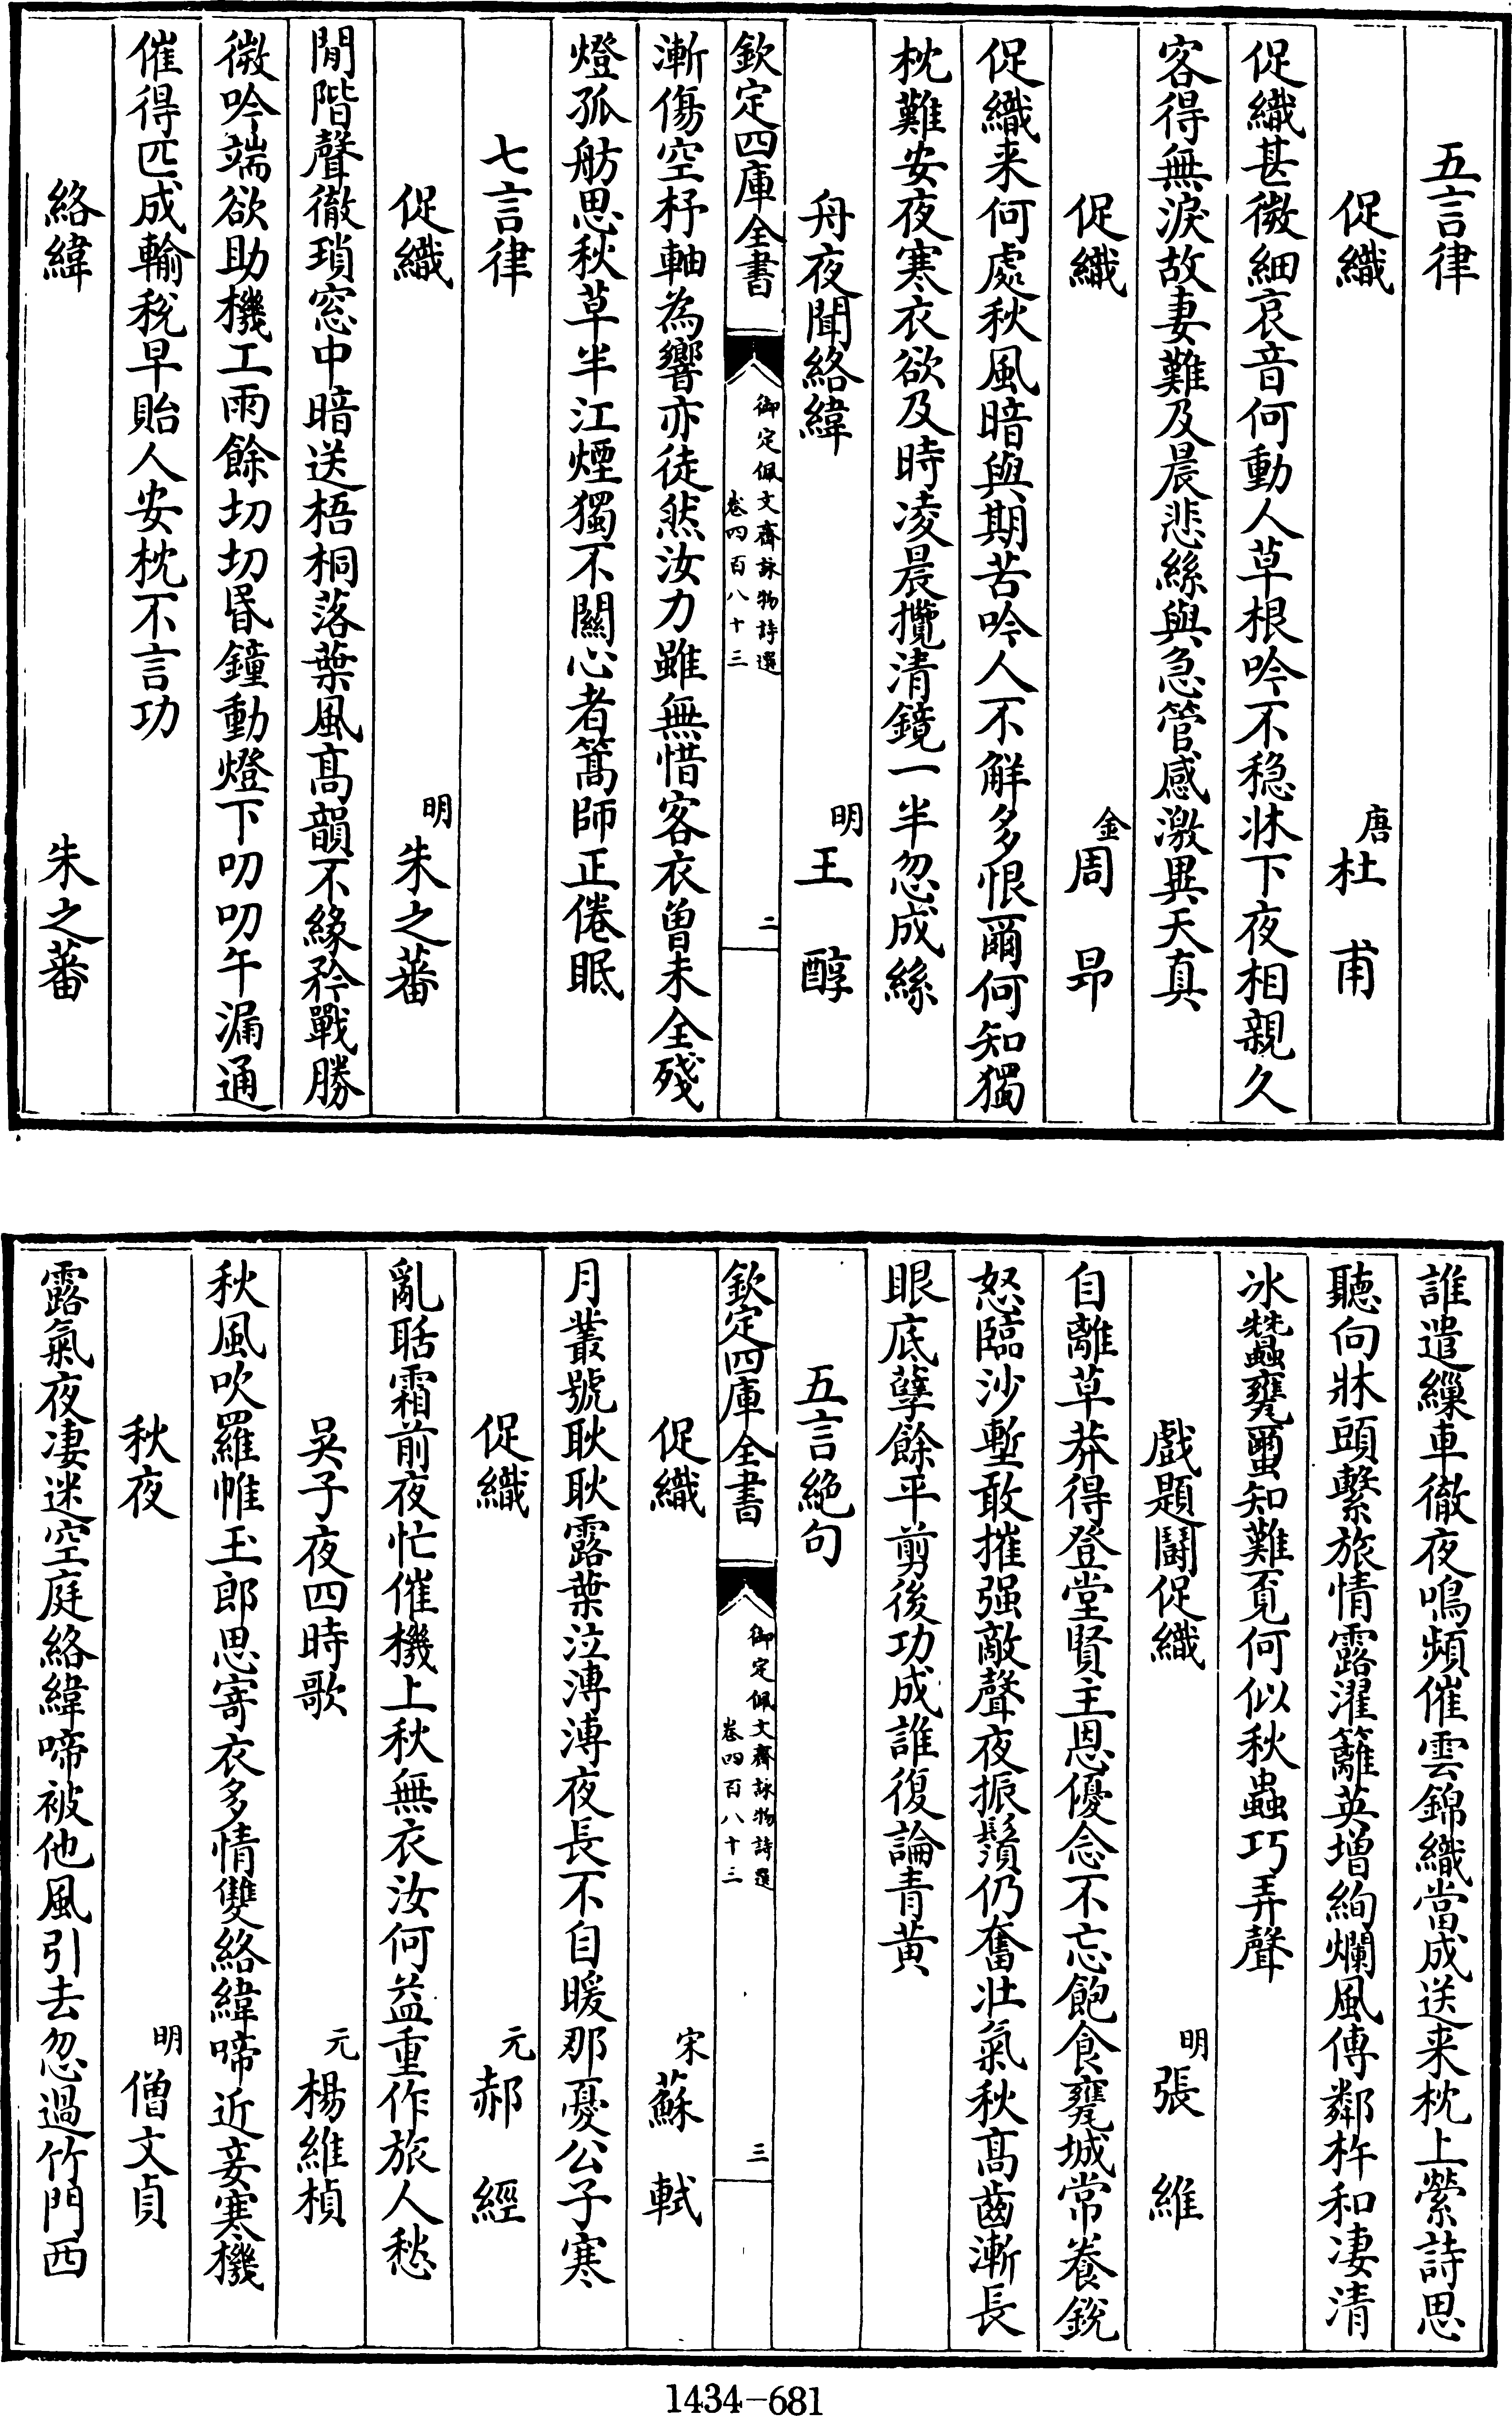 五言律
促織
唐杜甫
促織甚微細哀音何動人草根吟不穏牀下夜相親久
客得無淚故妻難及晨悲絲與急管感激異天真
促織
金周昂
促織来何處秋風暗與期苦吟人不解多恨爾何知獨
枕難安夜寒衣欲及時凌晨攬清鏡一半忽成絲
舟夜聞絡緯
明王醇
欽定四庫全書
御定佩文齋詠物詩選
卷四百八十三
二
漸傷空杼軸為響亦徒然汝力雖無惜客衣曽未全殘
燈孤舫思秋草半江煙獨不關心者篙師正倦眠
七言律
促織
明朱之蕃
閒階聲徹瑣窓中暗送梧桐落葉風髙韻不縁矜戰勝
微吟端欲助機工雨餘切切昏鐘動燈下叨叨午漏通
催得匹成輸税早貽人安枕不言功
絡緯
朱之蕃
誰遣繅車徹夜鳴頻催雲錦織當成送来枕上縈詩思
聽向牀頭繫旅情露濯籬英増絢爛風傳鄰杵和凄清
冰蠶甕璽知難覓何似秋蟲巧弄聲
戲題鬭促織
明張維
自離草莽得登堂賢主恩優念不忘飽食甕城常養銳
怒臨沙塹敢摧强敵聲夜振鬚仍奮壮氣秋髙齒漸長
眼底孽餘平剪後功成誰復論青黄
五言絶句
欽定四庫全書
御定佩文齋詠物詩選
卷四百八十三
三
促織
宋蘇軾
月叢號耿耿露葉泣漙漙夜長不自暖那憂公子寒
促織
元郝經
亂聒霜前夜忙催機上秋無衣汝何益重作旅人愁
吳子夜四時歌
元楊維楨
秋風吹羅帷玉郎思寄衣多情雙絡緯啼近妾寒機
秋夜
明僧文貞
露氣夜凄迷空庭絡緯啼被他風引去忽過竹門西
1434-681